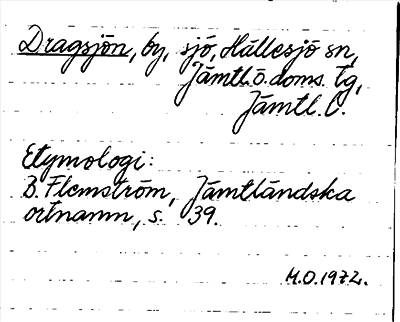 Dragsjön, by, sjö, Hällesjö sn,
Jämtl.ö.doms. tg,
Jämtl. l.
Etymologi:
B. Flemström, Jämtländska
ortnamn, s. 39.
M.O.1972.